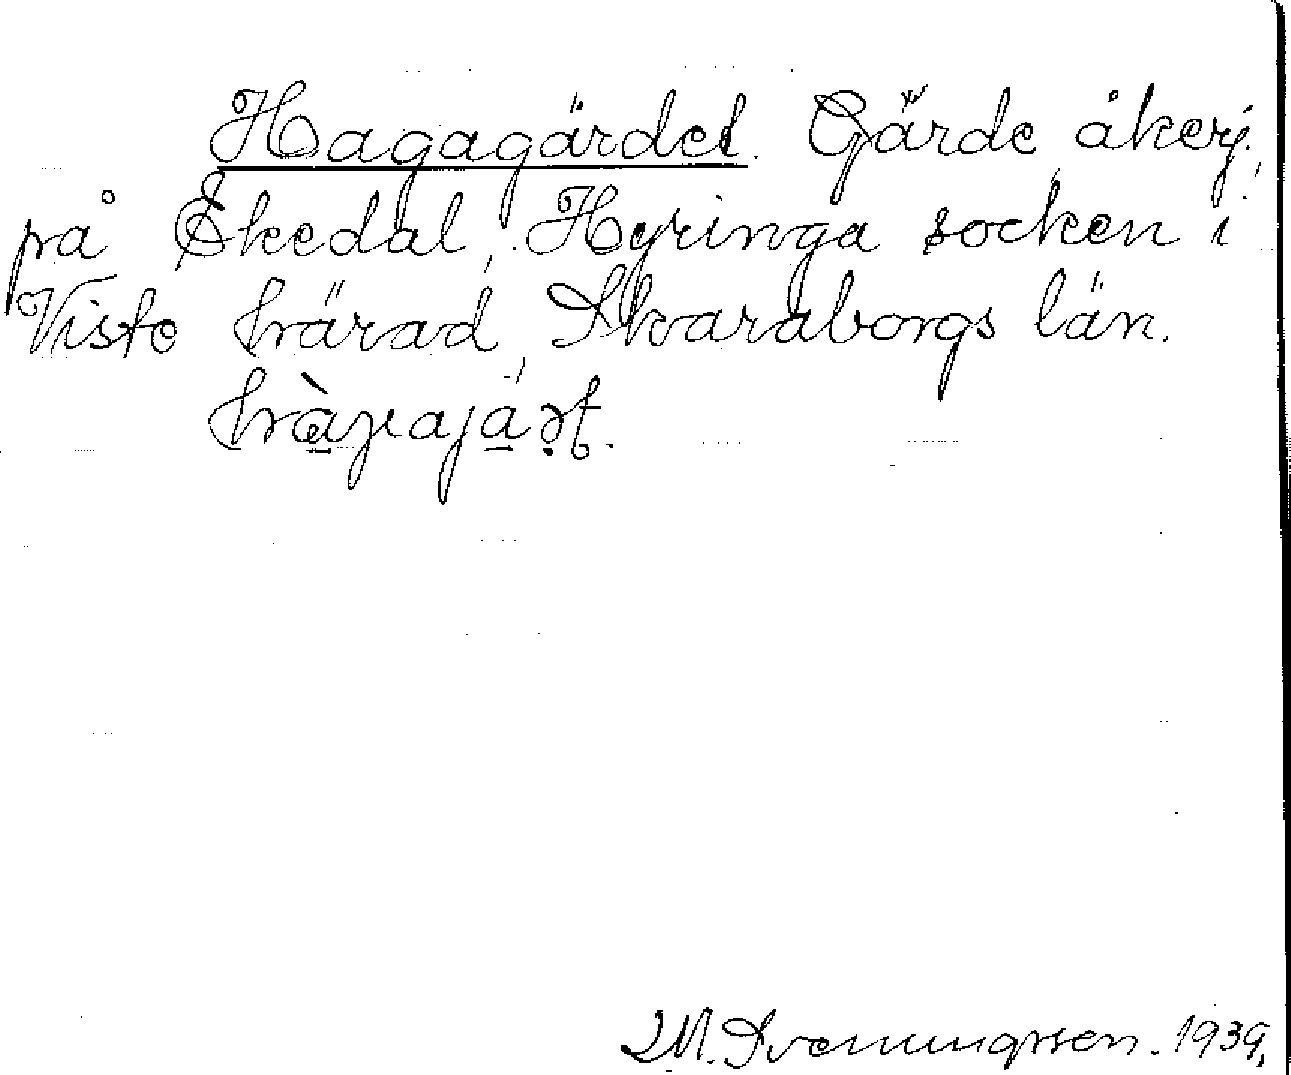 Hagagärdet. Gärde, åkerj.,
på Ekedal, Hyringa socken i
Viste härad, Skaraborgs län.
M. Svenungsson. 1939.